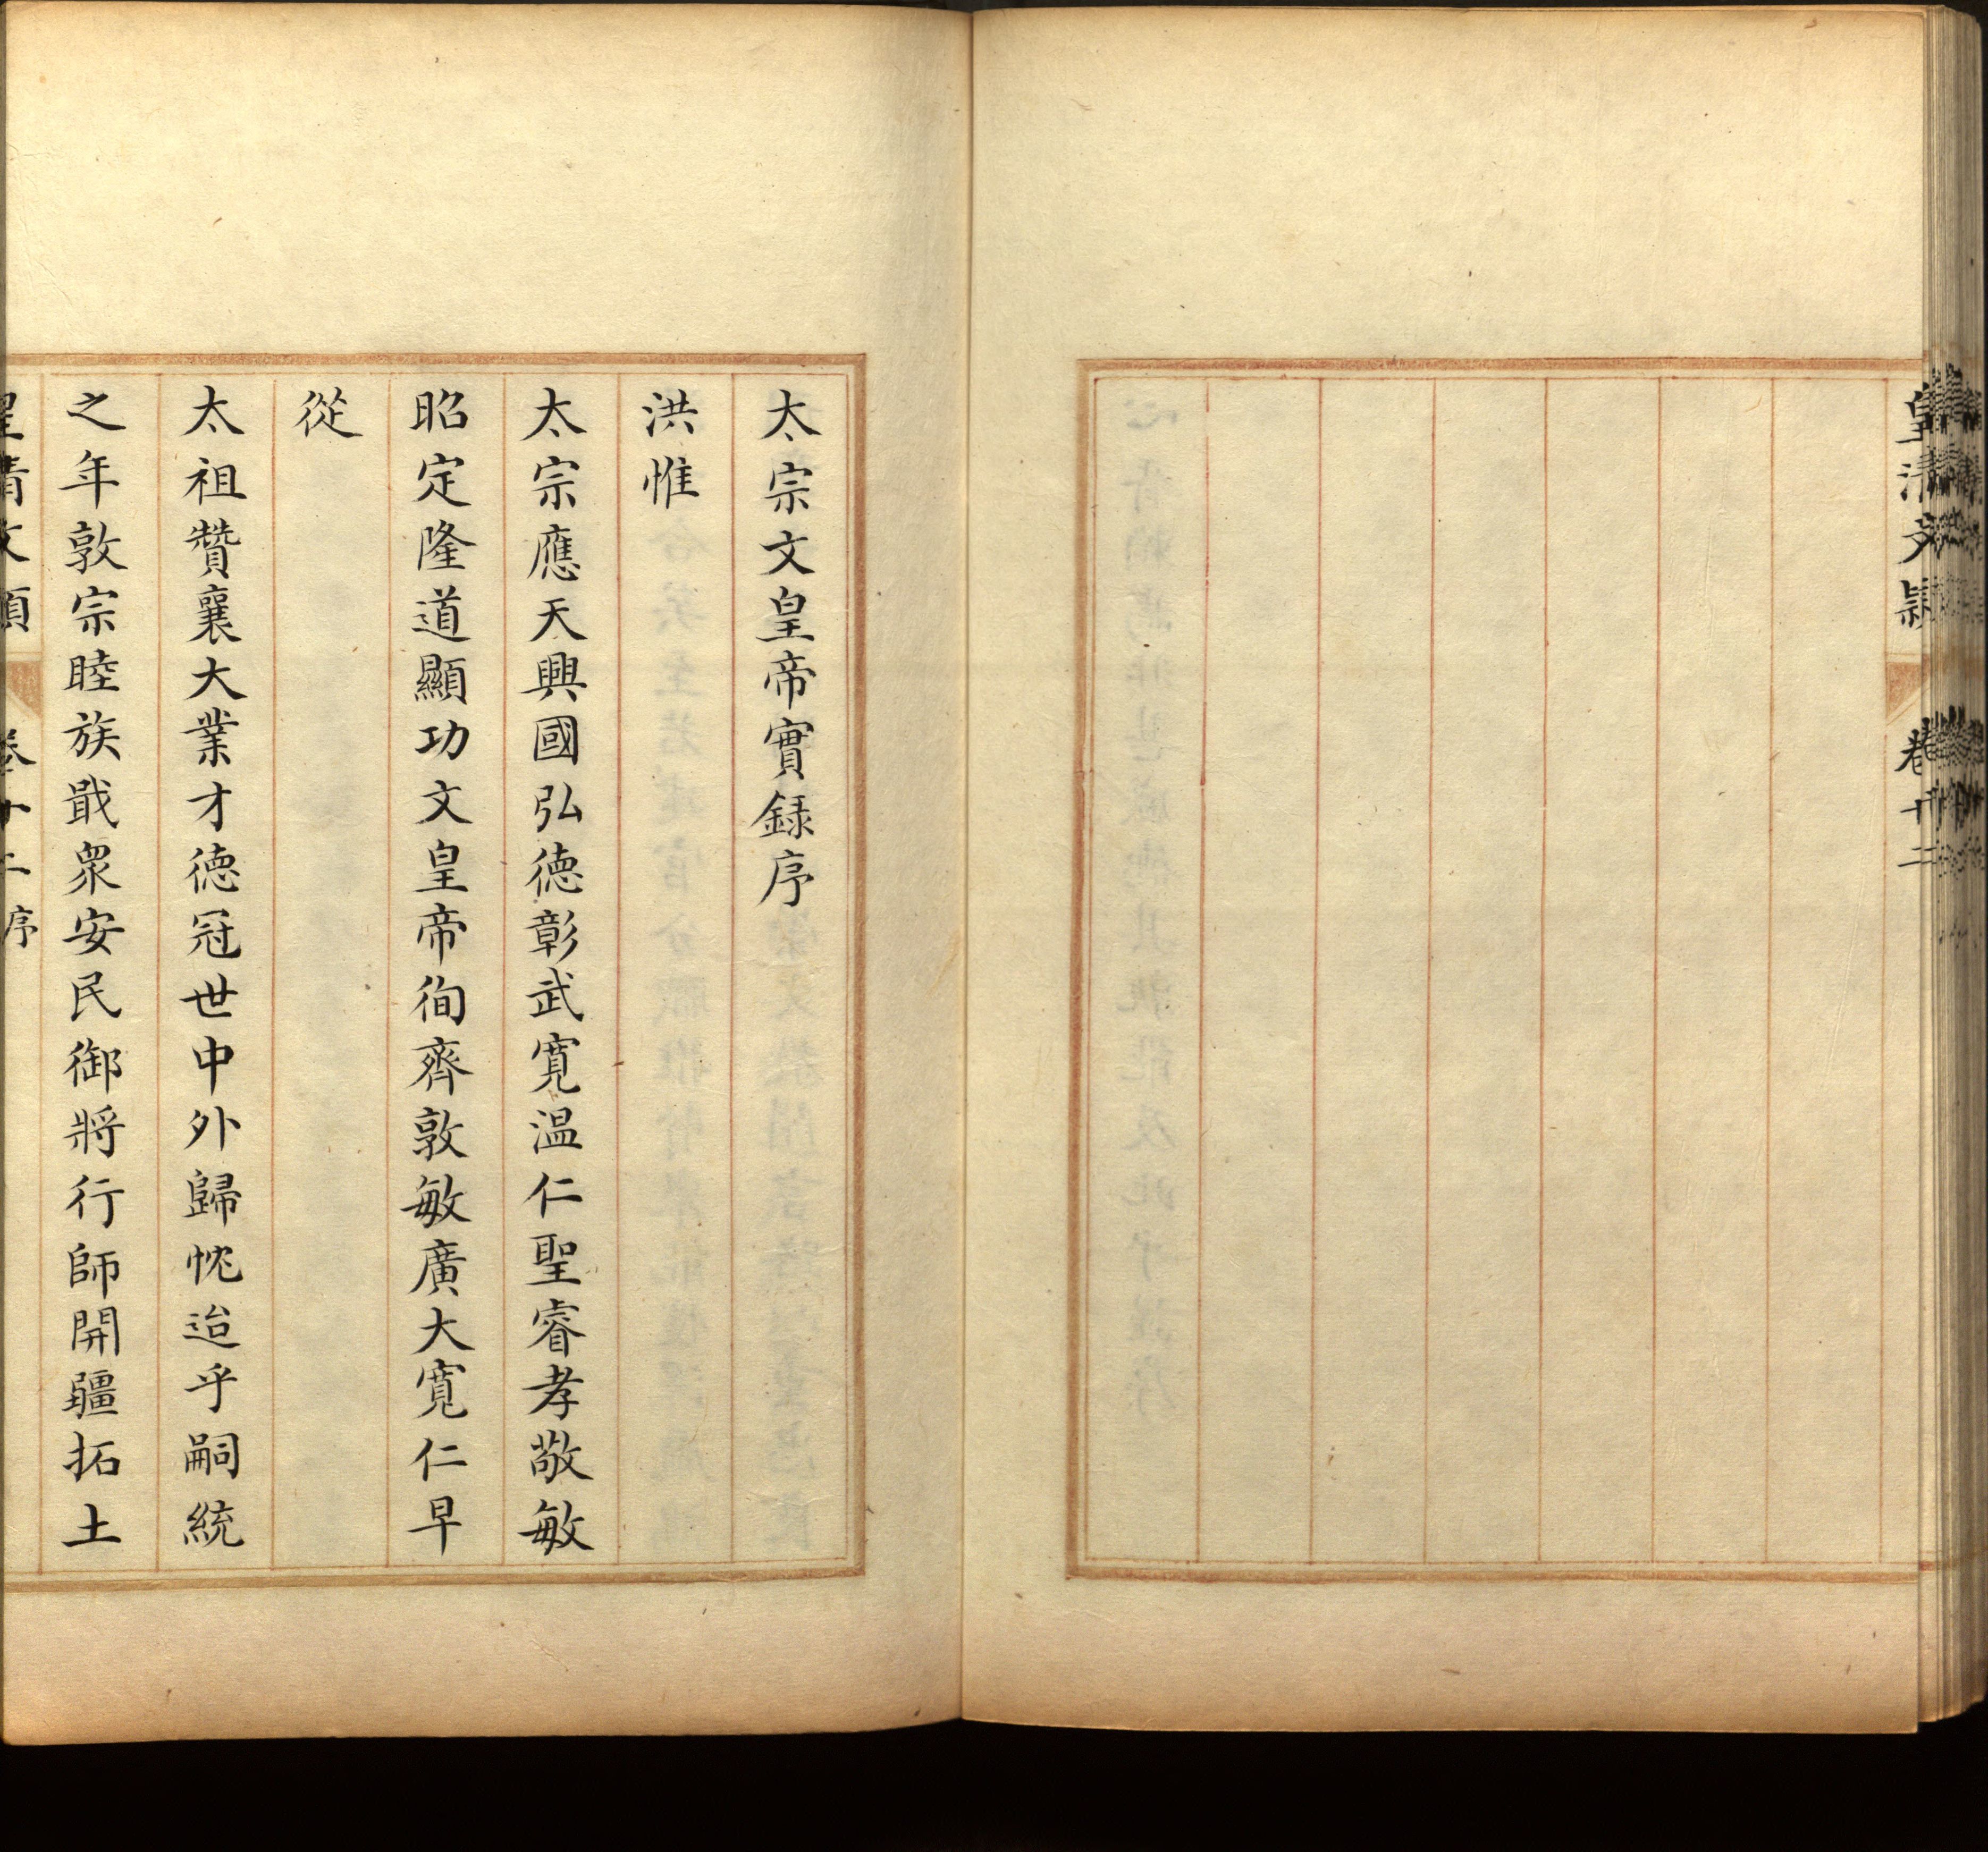 皇清文穎 卷十二
太宗文皇帝實録序
洪惟
太宗應天興國弘德彰武寛温仁聖睿孝敬敏
昭定隆道顯功文皇帝徇齊敦敏廣大寛仁早
從
太祖贊襄大業才德冠世中外歸忱迨乎嗣統
之年敦宗睦族戢衆安民御將行師開疆拓土
皇清文穎 卷十二 序